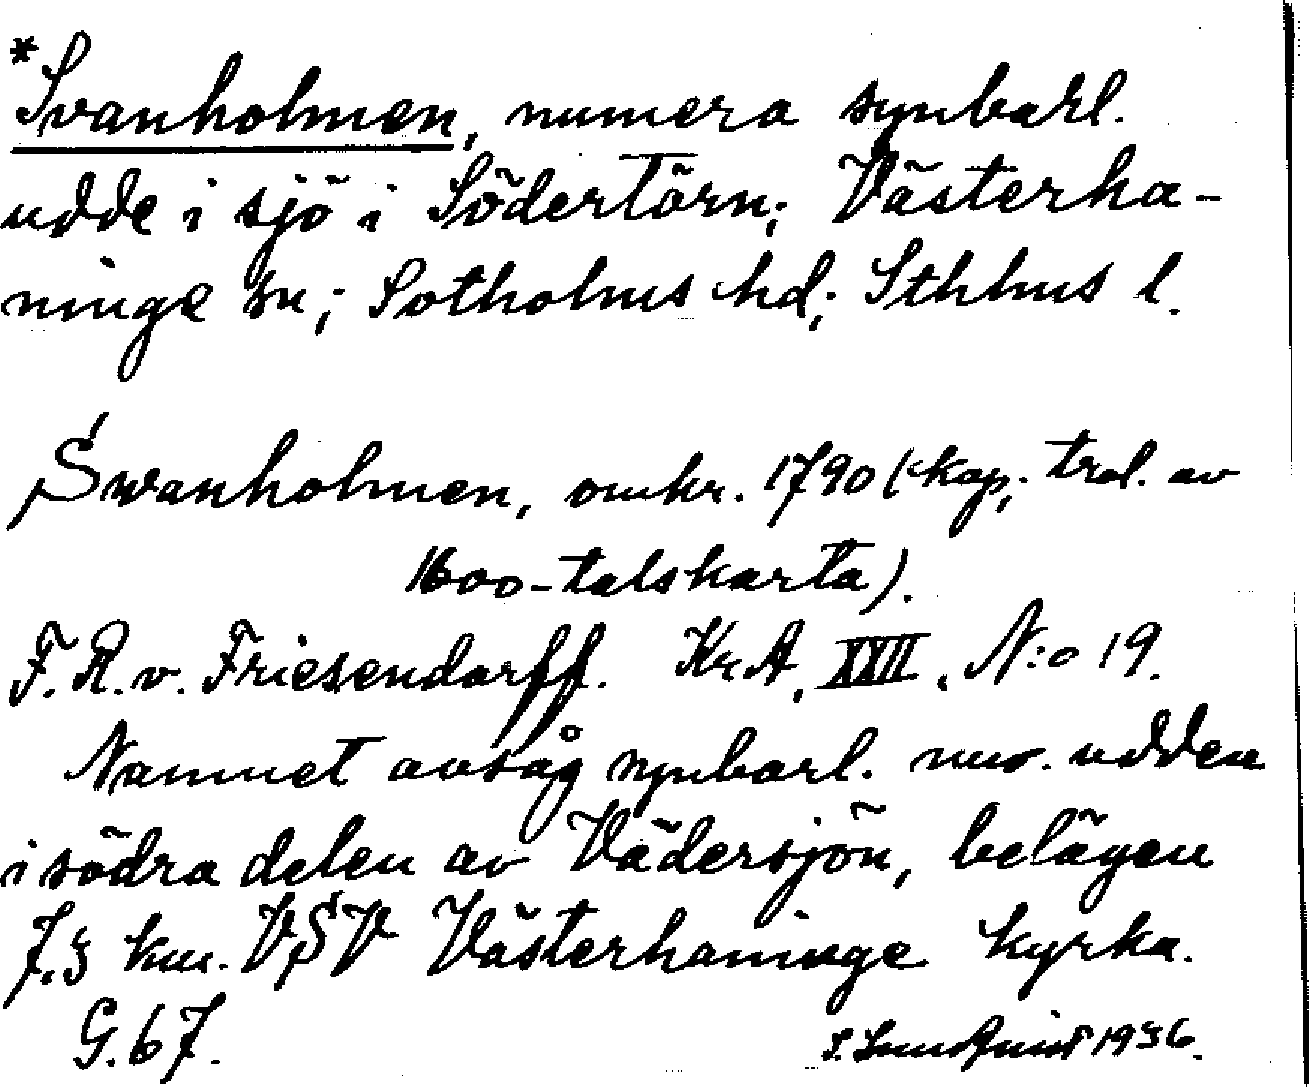 *Svanholmen, numera synbarl.
udde i sjö i Södertörn; Västerha-
ninge sn; Sotholms hd; Sthlms l.
Swanholmen, omkr. 1790 (kop; trol. av
1600-talskarta).
F. R. v. Friesendorff. Kr. A, XXII, N:o 19.
Namnet avsåg synbarl. nuv. udden
i södra delen av Vädersjön, belägen
7.3 km. VSV Västerhaninge kyrka.
G. 67.
S. Lundquist 1936.